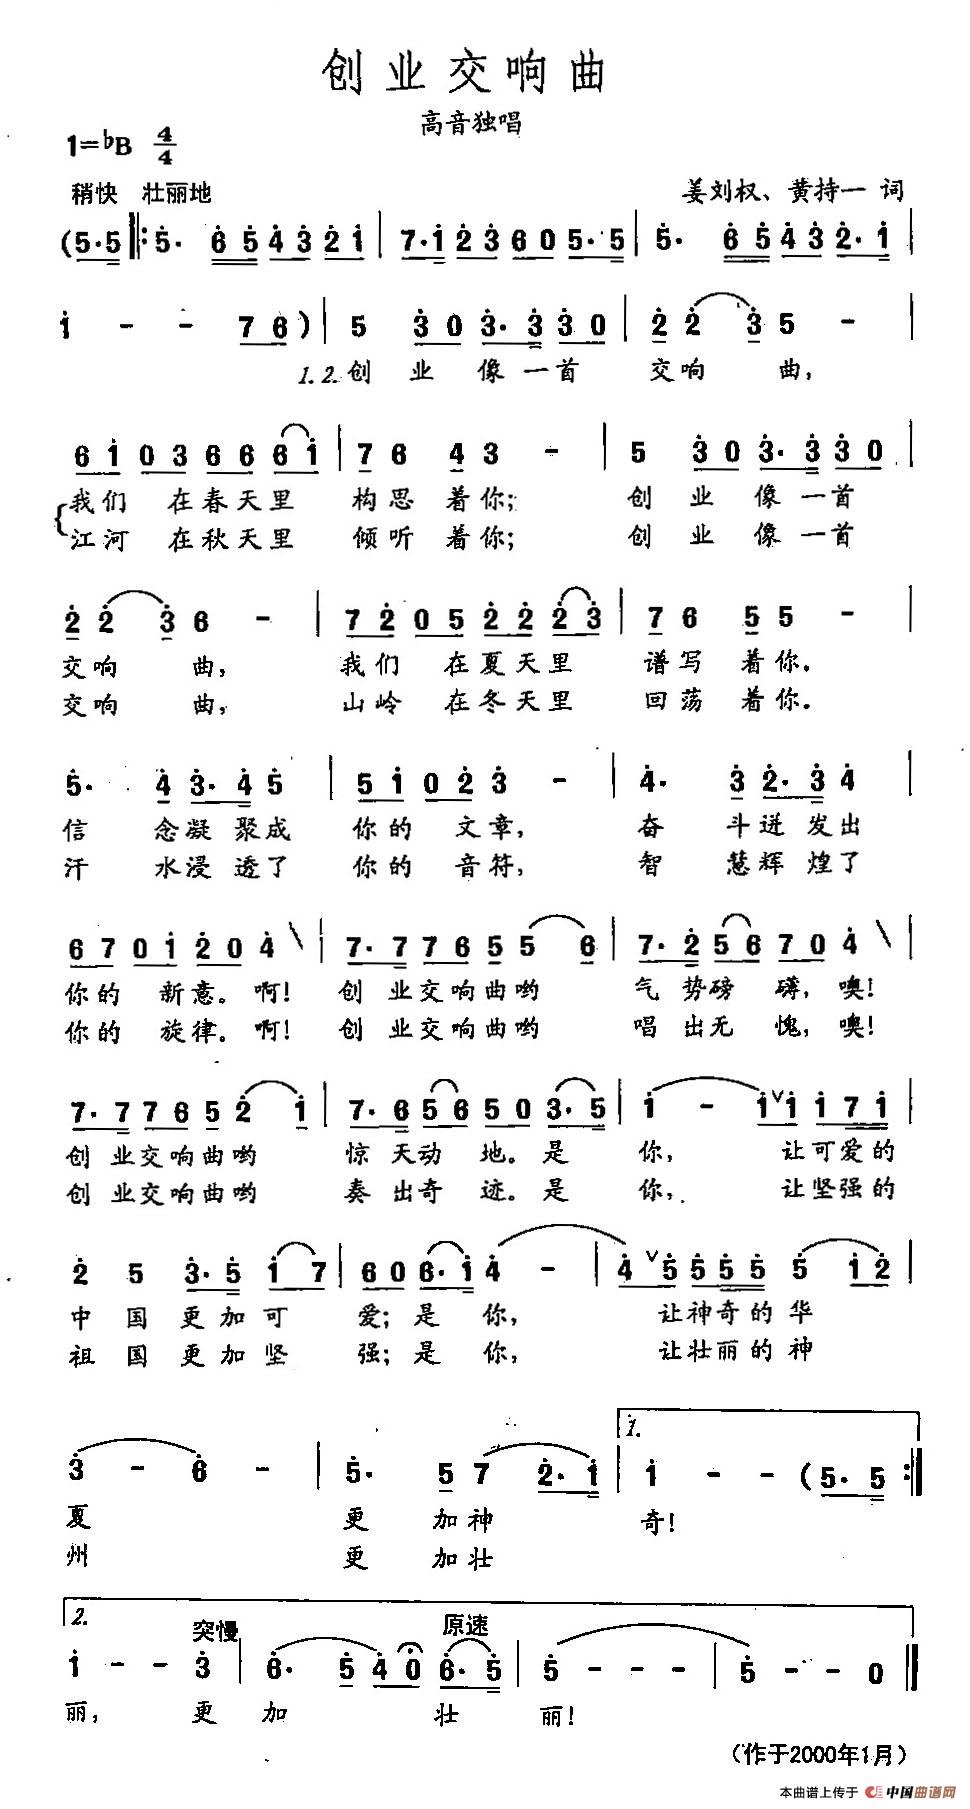 创业交响曲
高音独唱
1=♭B 4/4
稍快 壮丽地
姜刘权、黄持一 词
(5·5 5· 6543 21 7·12360 5·5 5· 6543 2·1
1 - - 76) 5 30 3·330 22 3 5 -
1.2.创 业 像 一首 交响 曲,
61 03 66 61 76 43 - 5 30 3·330
我们 在春天里 构思 着你; 创 业 像 一首
江河 在秋天里 倾听 着你; 创 业 像 一首
22 3 6 - 72 05 22 23 76 55 -
交响 曲, 我们 在夏天里 谱写 着你.
交响 曲, 山岭 在冬天里 回荡 着你.
5· 4 3·4 5 51 02 3 - 4· 3 2·3 4
信 念凝 聚成 你的 文章, 奋 斗迸 发出
汗 水浸 透了 你的 音符, 智 慧辉 煌了
67 01 20 4 7·7 76 5 5 6 7·2 56 70 4
你的 新意。啊! 创 业交响曲哟 气 势磅 礴, 噢!
你的 旋律。啊! 创 业交响曲哟 唱 出无 愧, 噢!
7·7 76 5 2 1 7·6 56 50 3·5 1 - 1 1 1 71
创 业交响曲哟 惊 天动 地。是 你, 让可爱的
创 业交响曲哟 奏 出奇 迹。是 你, 让坚强的
2 5 3·5 17 60 6·1 4 - 4 5 5 55 5 12
中 国 更加可 爱; 是 你, 让神奇的 华
祖 国 更加坚 强; 是 你, 让壮丽的 神
1.
3 - 6 - 5· 5 7 2·1 1 - - (5·5
夏 更 加神 奇!
州 更 加壮
2. 突慢 原速
1 - - 3 6· 5 4 0 6·5 5 - - - 5 - - 0
丽, 更 加 壮 丽!
(作于2000年1月)
本曲谱上传于 中国曲谱网